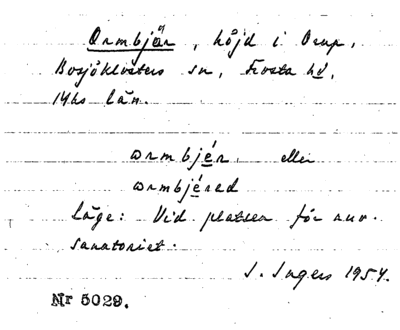 Ormbjär, höjd i Orup,
Bosjöklosters sn, Frosta hd,
Mhs län.
ormbjér eller
ormbjéred
Läge: Vid platsen för nuv.
sanatoriet.
I. Ingers 1954.
Nr 5029.